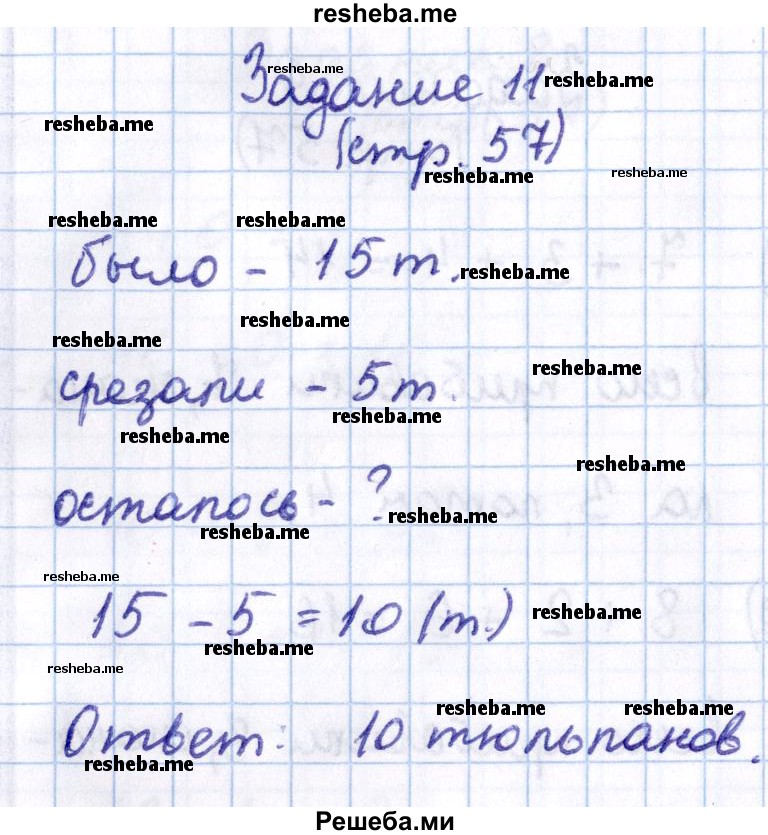 resheba.me
resheba.me
Задание 11 resheba.me
resheba.me
(стр. 57)
resheba.me resheba.me
resheba.me resheba.me
было - 15 т. resheba.me
resheba.me
resheba.me
resheba.me
срезали - 5 т.
resheba.me
resheba.me
resheba.me
осталось - ? resheba.me
resheba.me
resheba.me
15 - 5 = 10 (т.) resheba.me
resheba.me
resheba.me
resheba.me resheba.me
Ответ: 10 тюльпанов.
resheba.me
Решеба.ми